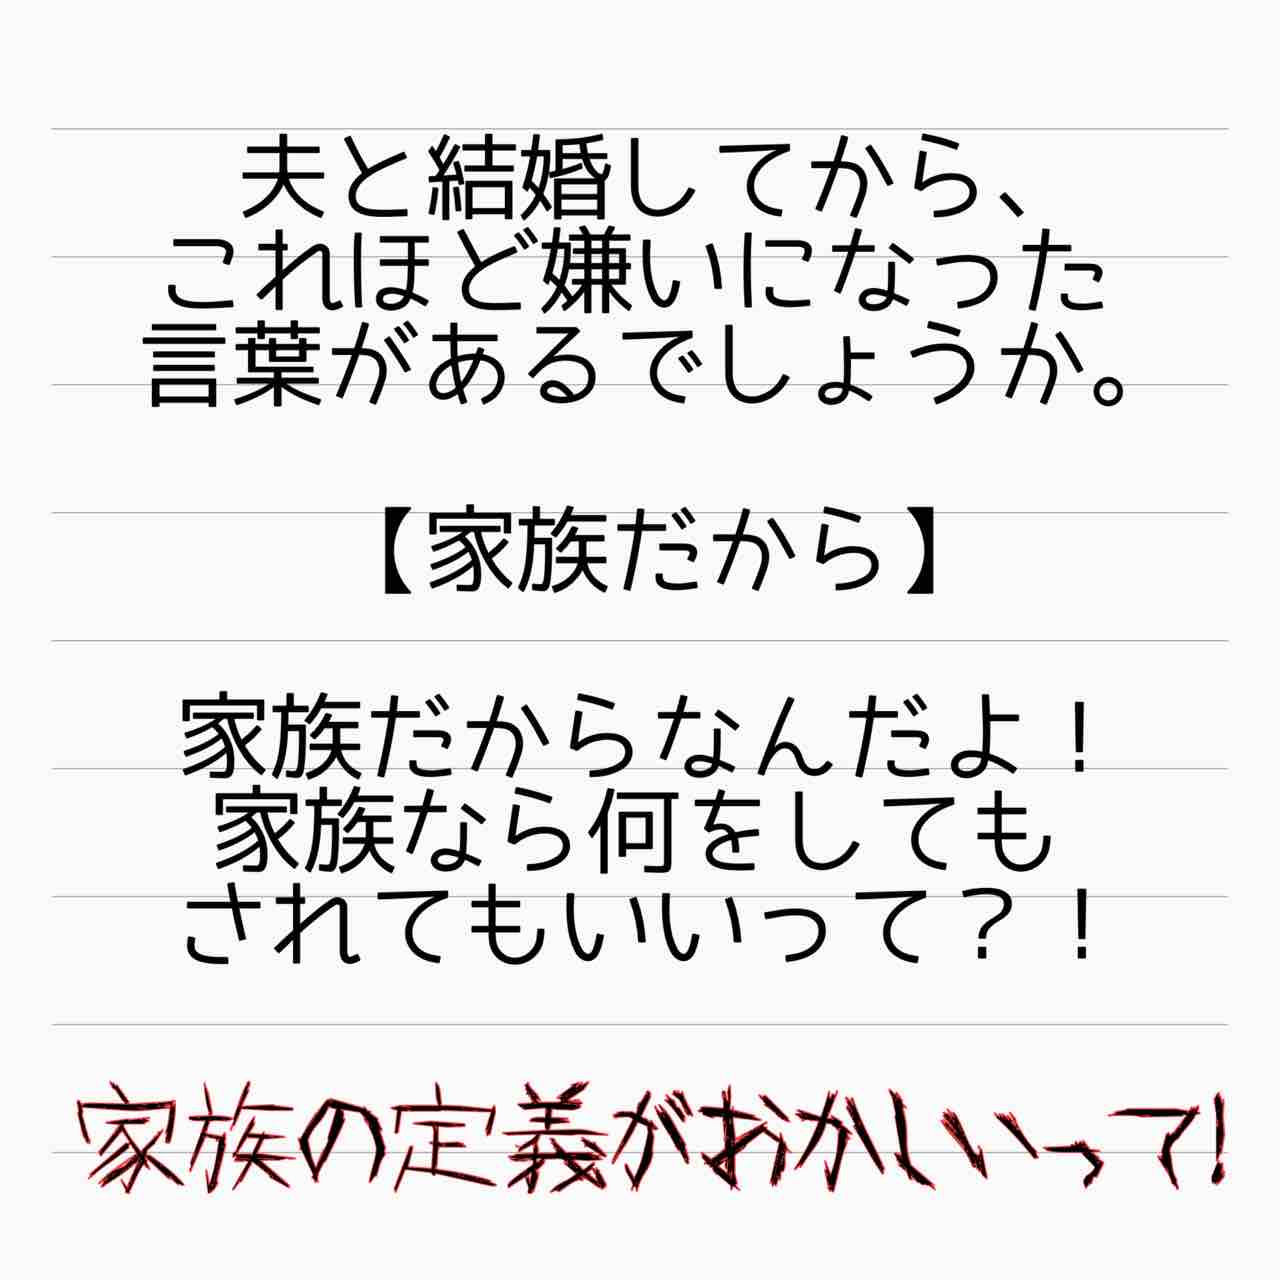 夫と結婚してから、
これほど嫌いになった
言葉があるでしょうか。
【家族だから】
家族だからなんだよ！
家族なら何をしても
されてもいいって？！
家族の定義がおかしいって!